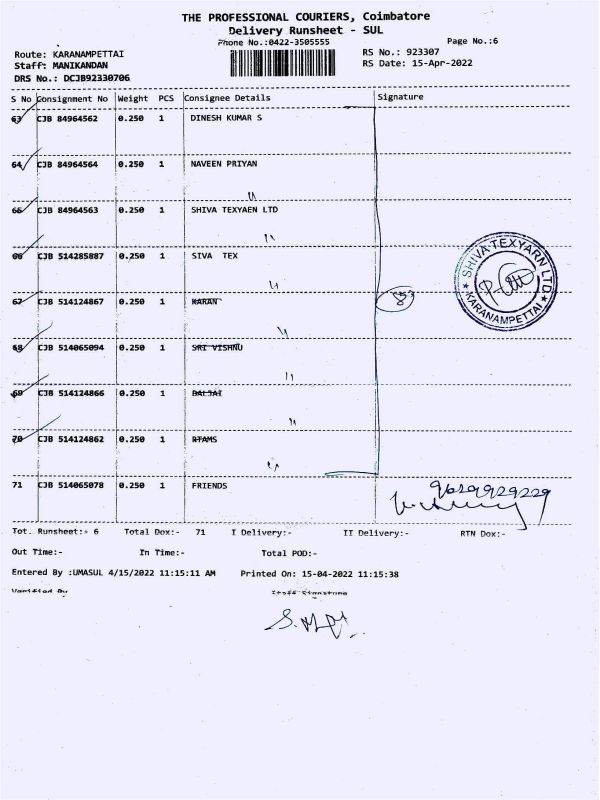 THE PROFESSIONAL COURIERS, Coimbatore
Delivery Runsheet - SUL
Phone No.:0422-3505555
Page No.:6
Route: KARANAMPETTAI
RS No.: 923307
Staff: MANIKANDAN
RS Date: 15-Apr-2022
DRS No.: DCJB92330706
S No Consignment No Weight PCS Consignee Details Signature
63 CJB 84964562 0.250 1 DINESH KUMAR S
64 CJB 84964564 0.250 1 NAVEEN PRIYAN
65 CJB 84964563 0.250 1 SHIVA TEXYAEN LTD
66 CJB 514285887 0.250 1 SIVA TEX
SHIVA TEXYARN LTD
KARANAMPETTAI
67 CJB 514124867 0.250 1 KARAN
68 CJB 514065094 0.250 1 SRI VISHNU
69 CJB 514124866 0.250 1 BALJAI
70 CJB 514124862 0.250 1 RTAMS
71 CJB 514065078 0.250 1 FRIENDS
9629929229
Tot. Runsheet:- 6 Total Dox:- 71 I Delivery:- II Delivery:- RTN Dox:-
Out Time:- In Time:- Total POD:-
Entered By :UMASUL 4/15/2022 11:15:11 AM Printed On: 15-04-2022 11:15:38
Verified By Staff Signature